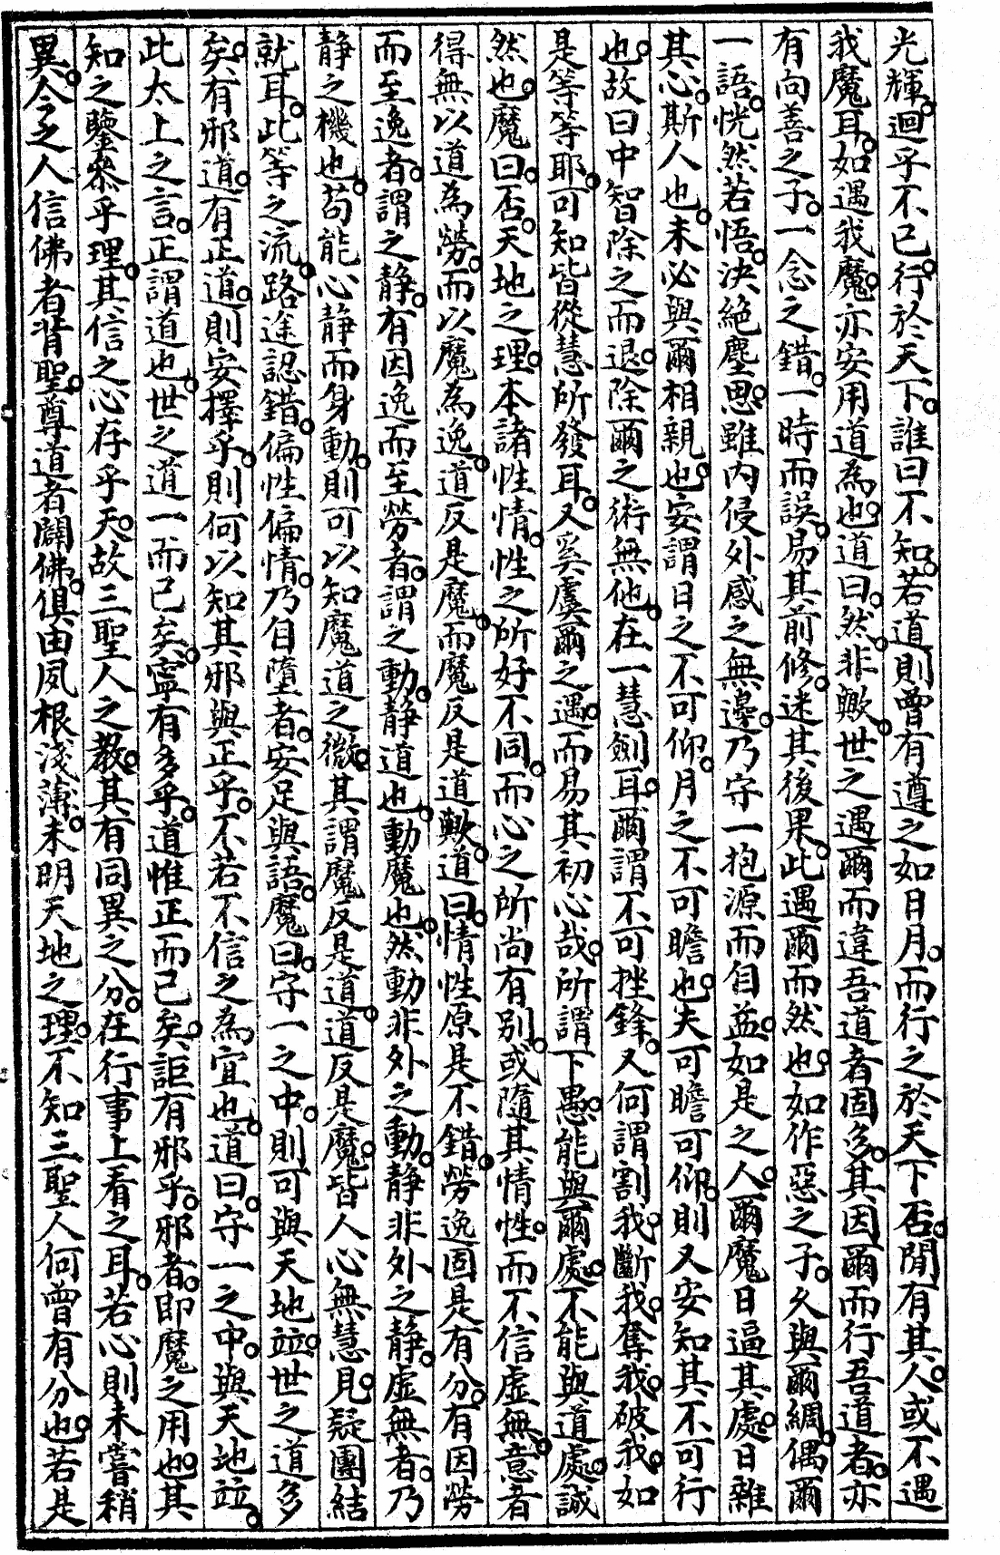 光輝。迴乎不已。行於天下。誰曰不知。若道則曾有遵之如日月。而行之於天下否。閒有其人。或不遇
我魔耳。如遇我魔。亦安用道為也。道曰。然。非歟。世之遇爾而違吾道者固多。其因爾而行吾道者。亦
有向善之子。一念之錯。一時而誤。易其前修。迷其後果。此遇爾而然也。如作惡之子。久與爾綢偶。爾
一語。恍然若悟。決絕塵思。雖內侵外感之無邊。乃守一抱源而自益。如是之人。爾魔日逼其處。日雜
其心。斯人也。未必與爾相親也。安謂日之不可仰。月之不可瞻也。夫可瞻可仰。則又安知其不可行
也。故曰中智除之而退。除爾之術無他。在一慧劍耳。爾謂不可挫鋒。又何謂割我。斷我。奪我。破我。如
是等等耶。可知皆從慧所發耳。又奚虞爾之遇。而易其初心哉。所謂下愚。能與爾處。不能與道處。誠
然也。魔曰。否。天地之理。本諸性情。性之所好不同。而心之所尚有別。或隨其情性。而不信虛無。意者
得無以道為勞。而以魔為逸。道反是魔。而魔反是道歟。道曰。情性原是不錯。勞逸固是有分。有因勞
而至逸者。謂之靜。有因逸而至勞者。謂之動。靜道也。動魔也。然動非外之動。靜非外之靜。虛無者。乃
靜之機也。苟能心靜而身動。則可以知魔道之微。其謂魔反是道。道反是魔。皆人心無慧見。疑團結
就耳。此等之流。路途認錯。偏性偏情。乃自墮者。安足與語。魔曰。守一之中。則可與天地竝。世之道多
矣。有邪道。有正道。則安擇乎。則何以知其邪與正乎。不若不信之為宜也。道曰。守一之中。與天地竝。
此太上之言。正謂道也。世之道一而已矣。寧有多乎。道惟正而已矣。詎有邪乎。邪者。即魔之用也。其
知之鑒。叅乎理。其信之心。存乎天。故三聖人之教。其有同異之分。在行事上看之耳。若心則未嘗稍
異。今之人信佛者背聖。尊道者闢佛。俱由夙根淺薄。未明天地之理。不知三聖人何曾有分也。若是